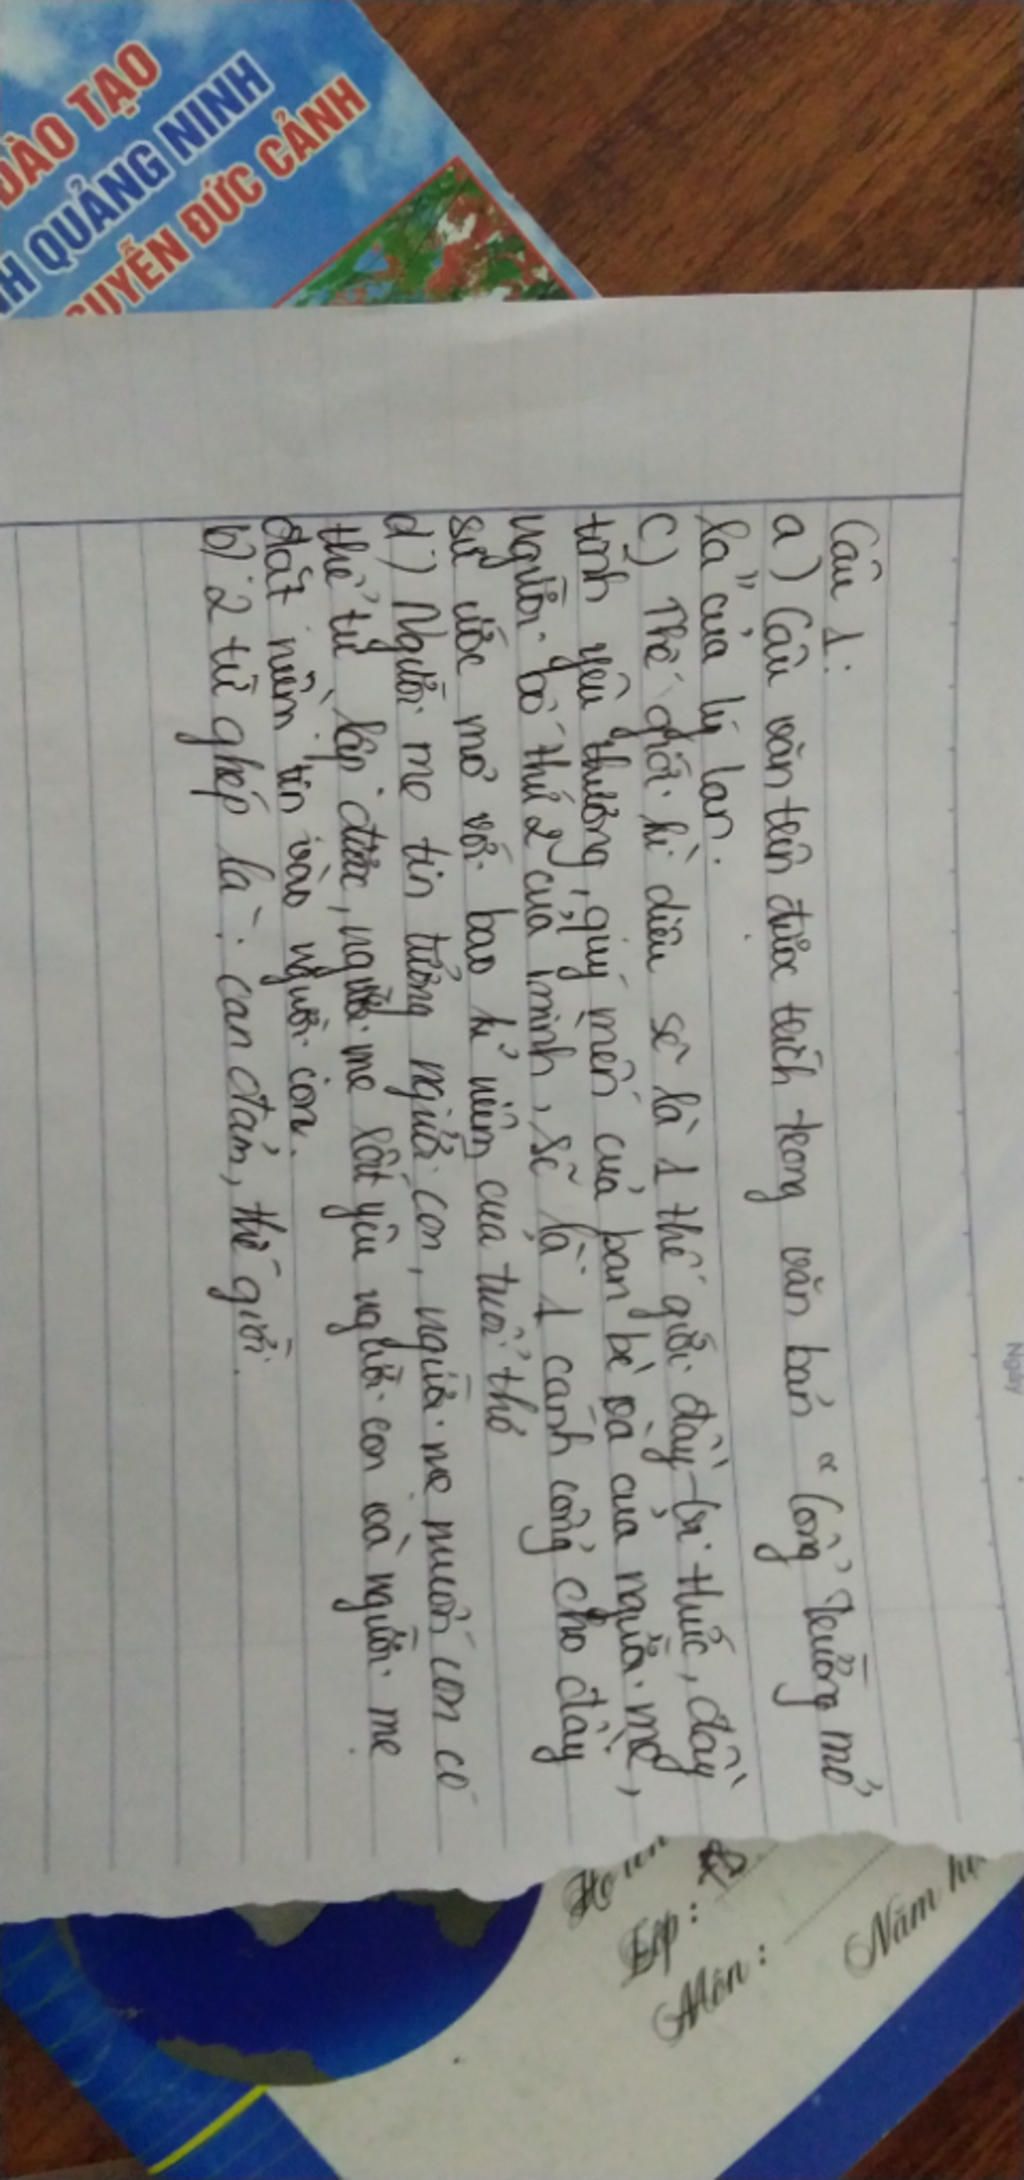 ĐÀO TẠO
NH QUẢNG NINH
GUYỄN ĐỨC CẢNH
Ngày
Câu 1:
a) Câu văn trên được trích trong văn bản "Cổng trường mở
ra" của lý lan.
c) Thế giới kì diệu sẽ là 1 thế giới đầy tri thức, đầy
tình yêu thương, quý mến của bạn bè và của người mẹ,
người bố thứ 2 của mình, sẽ là 1 cánh cổng cho đầy
sự ước mơ với bao kỉ niệm của tuổi thơ
d) Người mẹ tin tưởng người con, người mẹ muốn con có
thể tự lập được, người mẹ rất yêu người con và người mẹ
đặt niềm tin vào người con.
b) 2 từ ghép là: can đảm, thế giới.
Họ tên
Lớp:
Môn:
Năm h